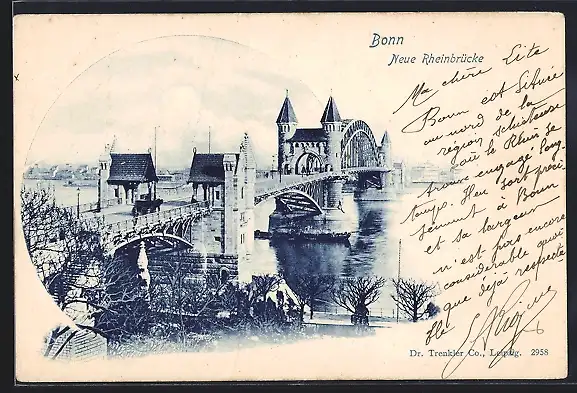 Bonn
Neue Rheinbrücke
Ma chère Lita
Bonn est située
au nord de la
région schisteuse
où le Rhin se
trouve engagé long-
temps. Il en sort
jusement à Bonn
et sa largeur
n'est pas encore
considérable quoi
que déjà respecta
ble
Dr. Trenkler Co., Leipzig. 2958